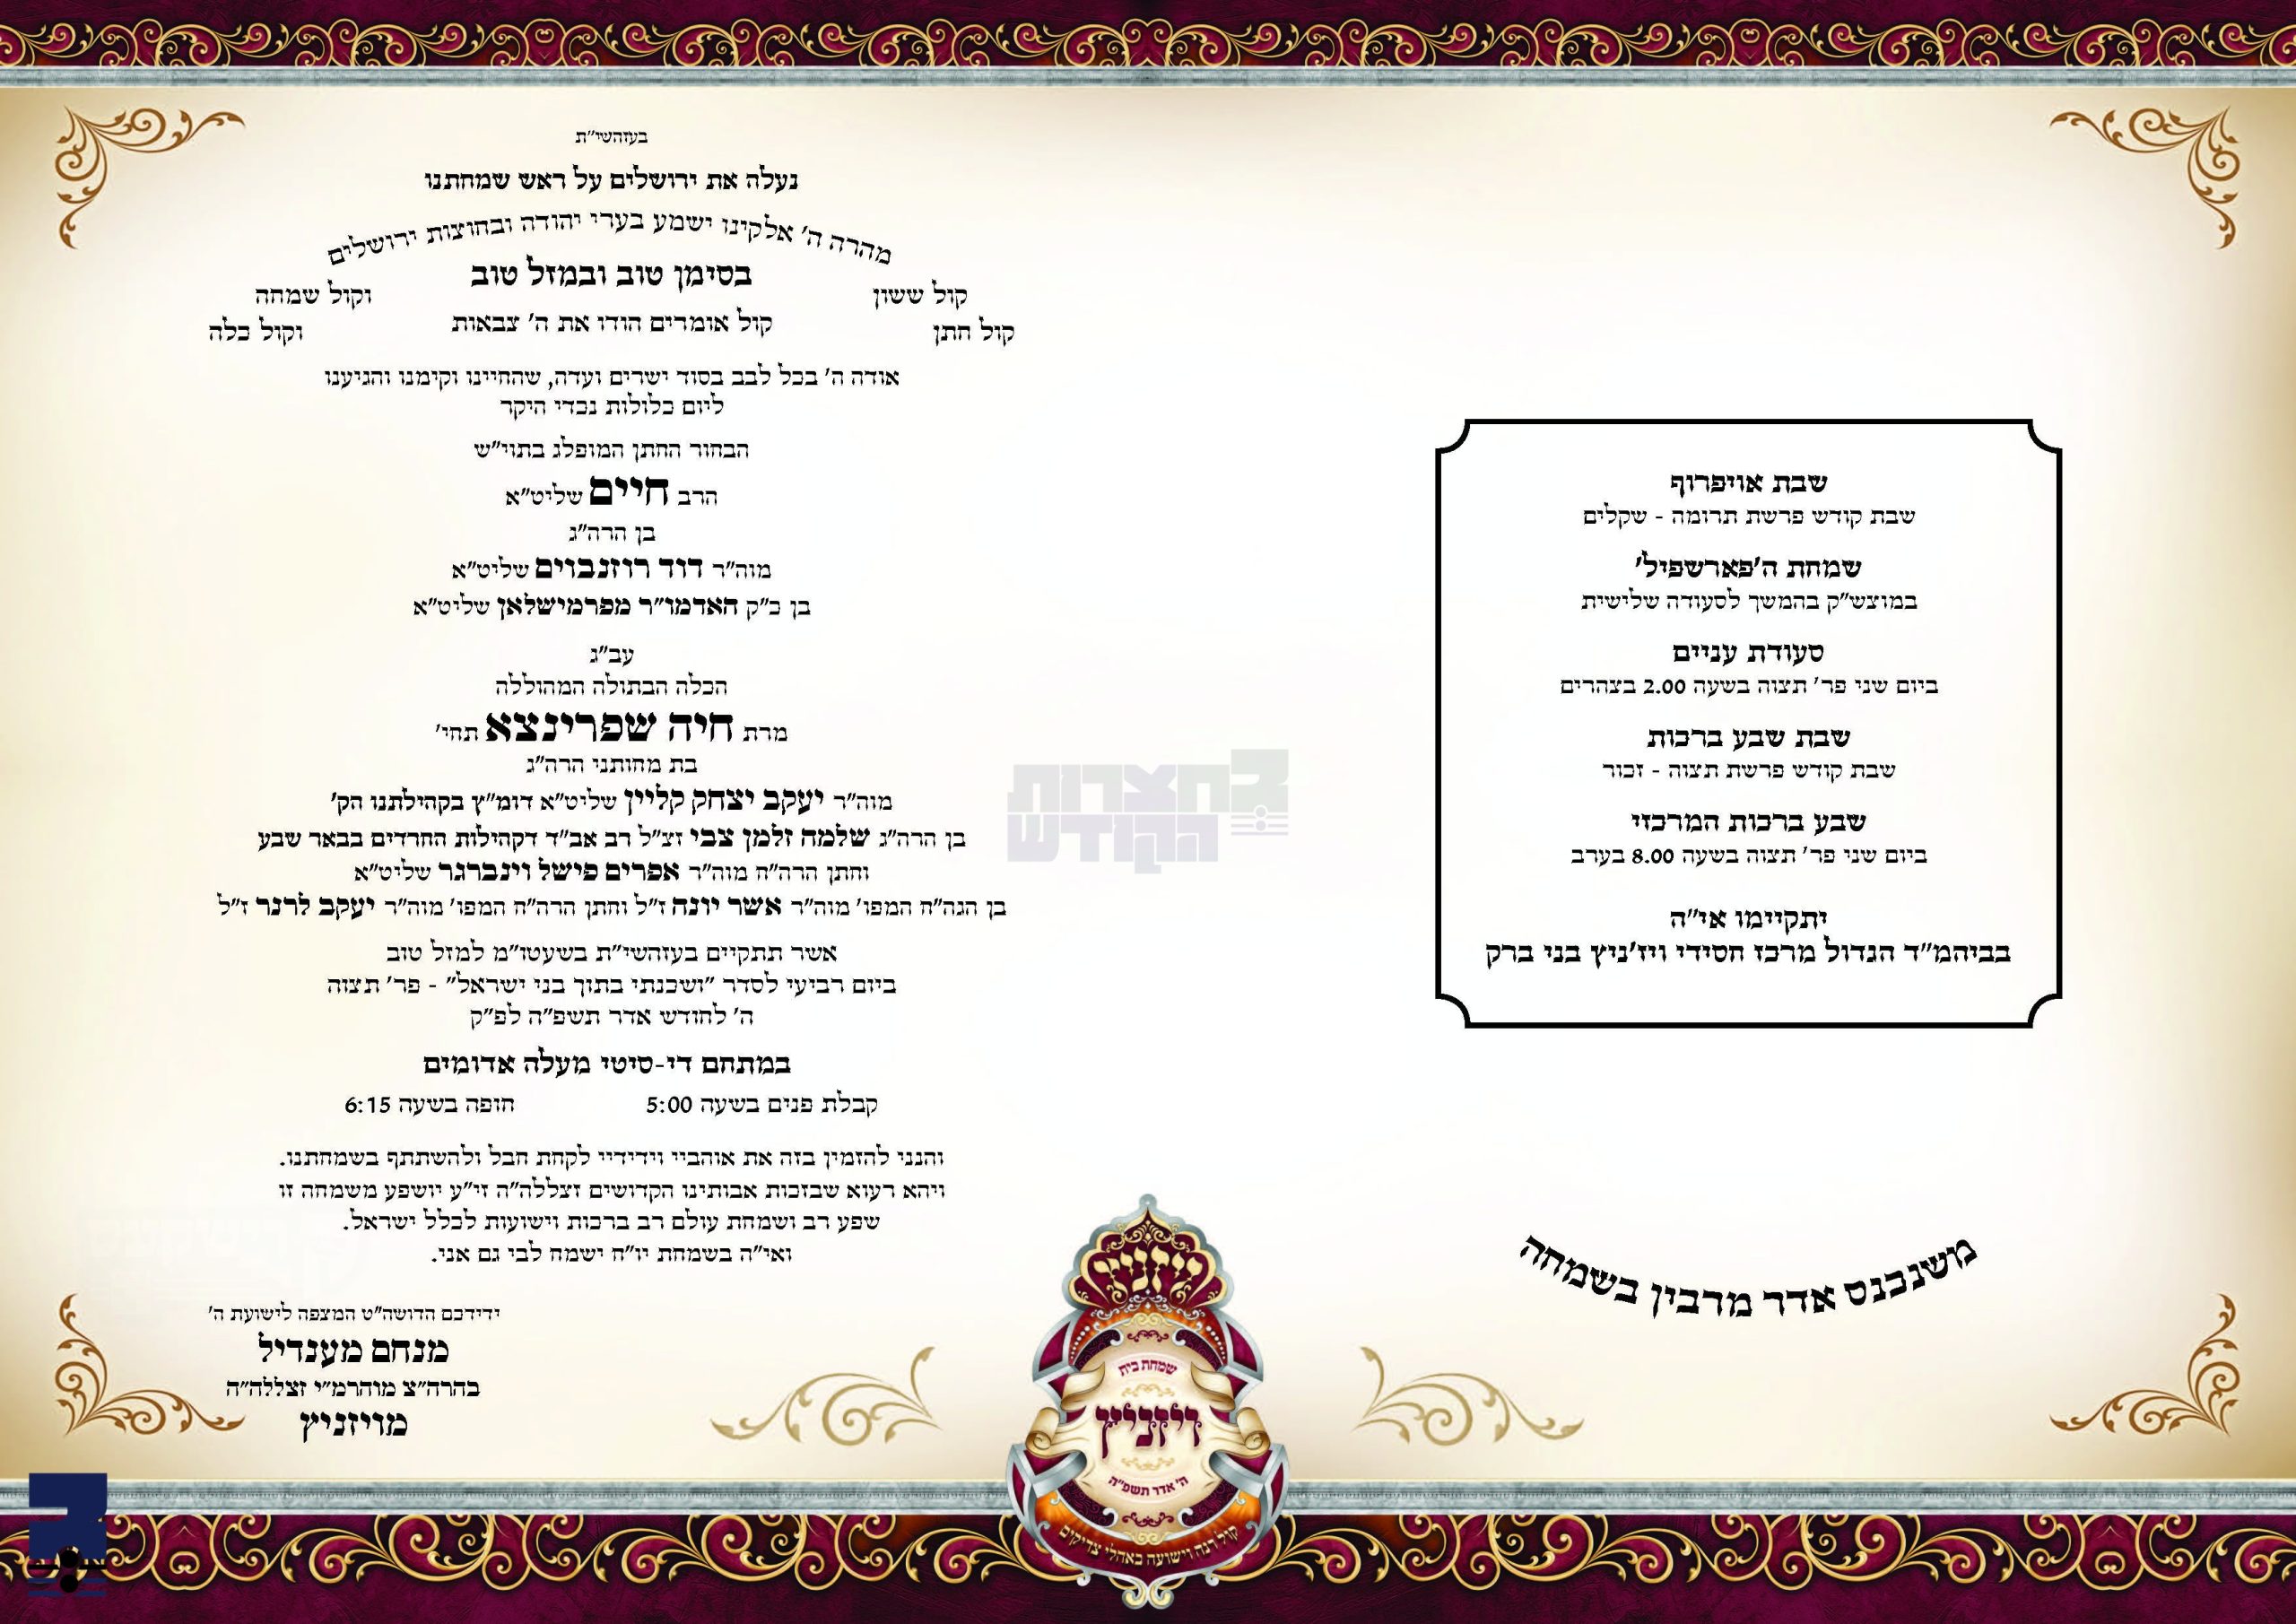 בעזהשי"ת
נעלה את ירושלים על ראש שמחתנו
מהרה ה' אלקינו ישמע בערי יהודה ובחוצות ירושלים
בסימן טוב ובמזל טוב
קול ששון וקול שמחה
קול חתן קול אומרים הודו את ה' צבאות וקול כלה
אודה ה' בכל לבב בסוד ישרים ועדה, שהחיינו וקימנו והגיענו
ליום כלולות נכדי היקר
הבחור החתן המופלג בתוי"ש
הרב חיים שליט"א
בן הרה"ג
מוה"ר דוד רוזנבוים שליט"א
בן כ"ק האדמו"ר מפרמישלאן שליט"א
עב"ג
הכלה הבתולה המהוללה
מרת חיה שפרינצא תחי'
בת מחותני הרה"ג
מוה"ר יעקב יצחק קליין שליט"א דומ"ץ בקהילתנו הק'
בן הרה"ג שלמה זלמן צבי זצ"ל רב אב"ד דקהילות החרדים בבאר שבע
וחתן הרה"ח מוה"ר אפרים פישל וינברגר שליט"א
בן הגה"ח המפו' מוה"ר אשר יונה ז"ל וחתן הרה"ח המפו' מוה"ר יעקב לרנר ז"ל
אשר תתקיים בעזהשי"ת בשעטו"מ למזל טוב
ביום רביעי לסדר "ושכנתי בתוך בני ישראל" - פר' תצוה
ה' לחודש אדר תשפ"ה לפ"ק
במתחם די-סיטי מעלה אדומים
קבלת פנים בשעה 5:00 חופה בשעה 6:15
והנני להזמין בזה את אוהביי וידידיי לקחת חבל ולהשתתף בשמחתנו.
ויהא רעוא שבזכות אבותינו הקדושים זצללה"ה זי"ע יושפע משמחה זו
שפע רב ושמחת עולם רב ברכות וישועות לכלל ישראל.
ואי"ה בשמחת יו"ח ישמח לבי גם אני.
ידידכם הדושה"ט המצפה לישועת ה'
מנחם מענדיל
בהרה"צ מוהרמ"י זצללה"ה
מויזניץ
שבת אויפרוף
שבת קודש פרשת תרומה - שקלים
שמחת ה'פארשפיל'
במוצש"ק בהמשך לסעודה שלישית
סעודת עניים
ביום שני פר' תצוה בשעה 2.00 בצהרים
שבת שבע ברכות
שבת קודש פרשת תצוה - זכור
שבע ברכות המרכזי
ביום שני פר' תצוה בשעה 8.00 בערב
יתקיימו אי"ה
בביהמ"ד הגדול מרכז חסידי ויז'ניץ בני ברק
משנכנס אדר מרבין בשמחה
בחצרות
הקודש
ויזניץ
שמחת בית
ויזניץ
ה' אדר תשפ"ה
קול רנה וישועה באהלי צדיקים